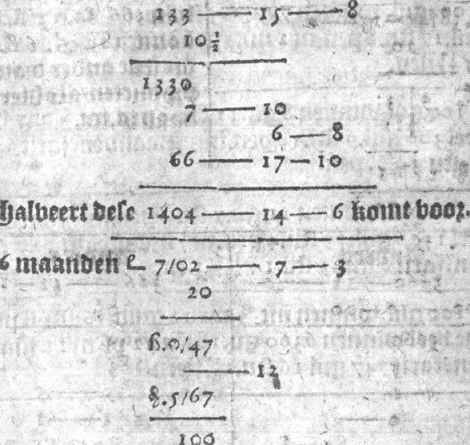 133 — 15 — 8
10½
1330
7 — 10
6 — 8
66 — 17 — 10
halbeert dese 1404 — 14 — 6 komt voor.
6 maanden £ 7/02 — 7 — 3
20
ß.0/47
— 12
₰.5/67
100